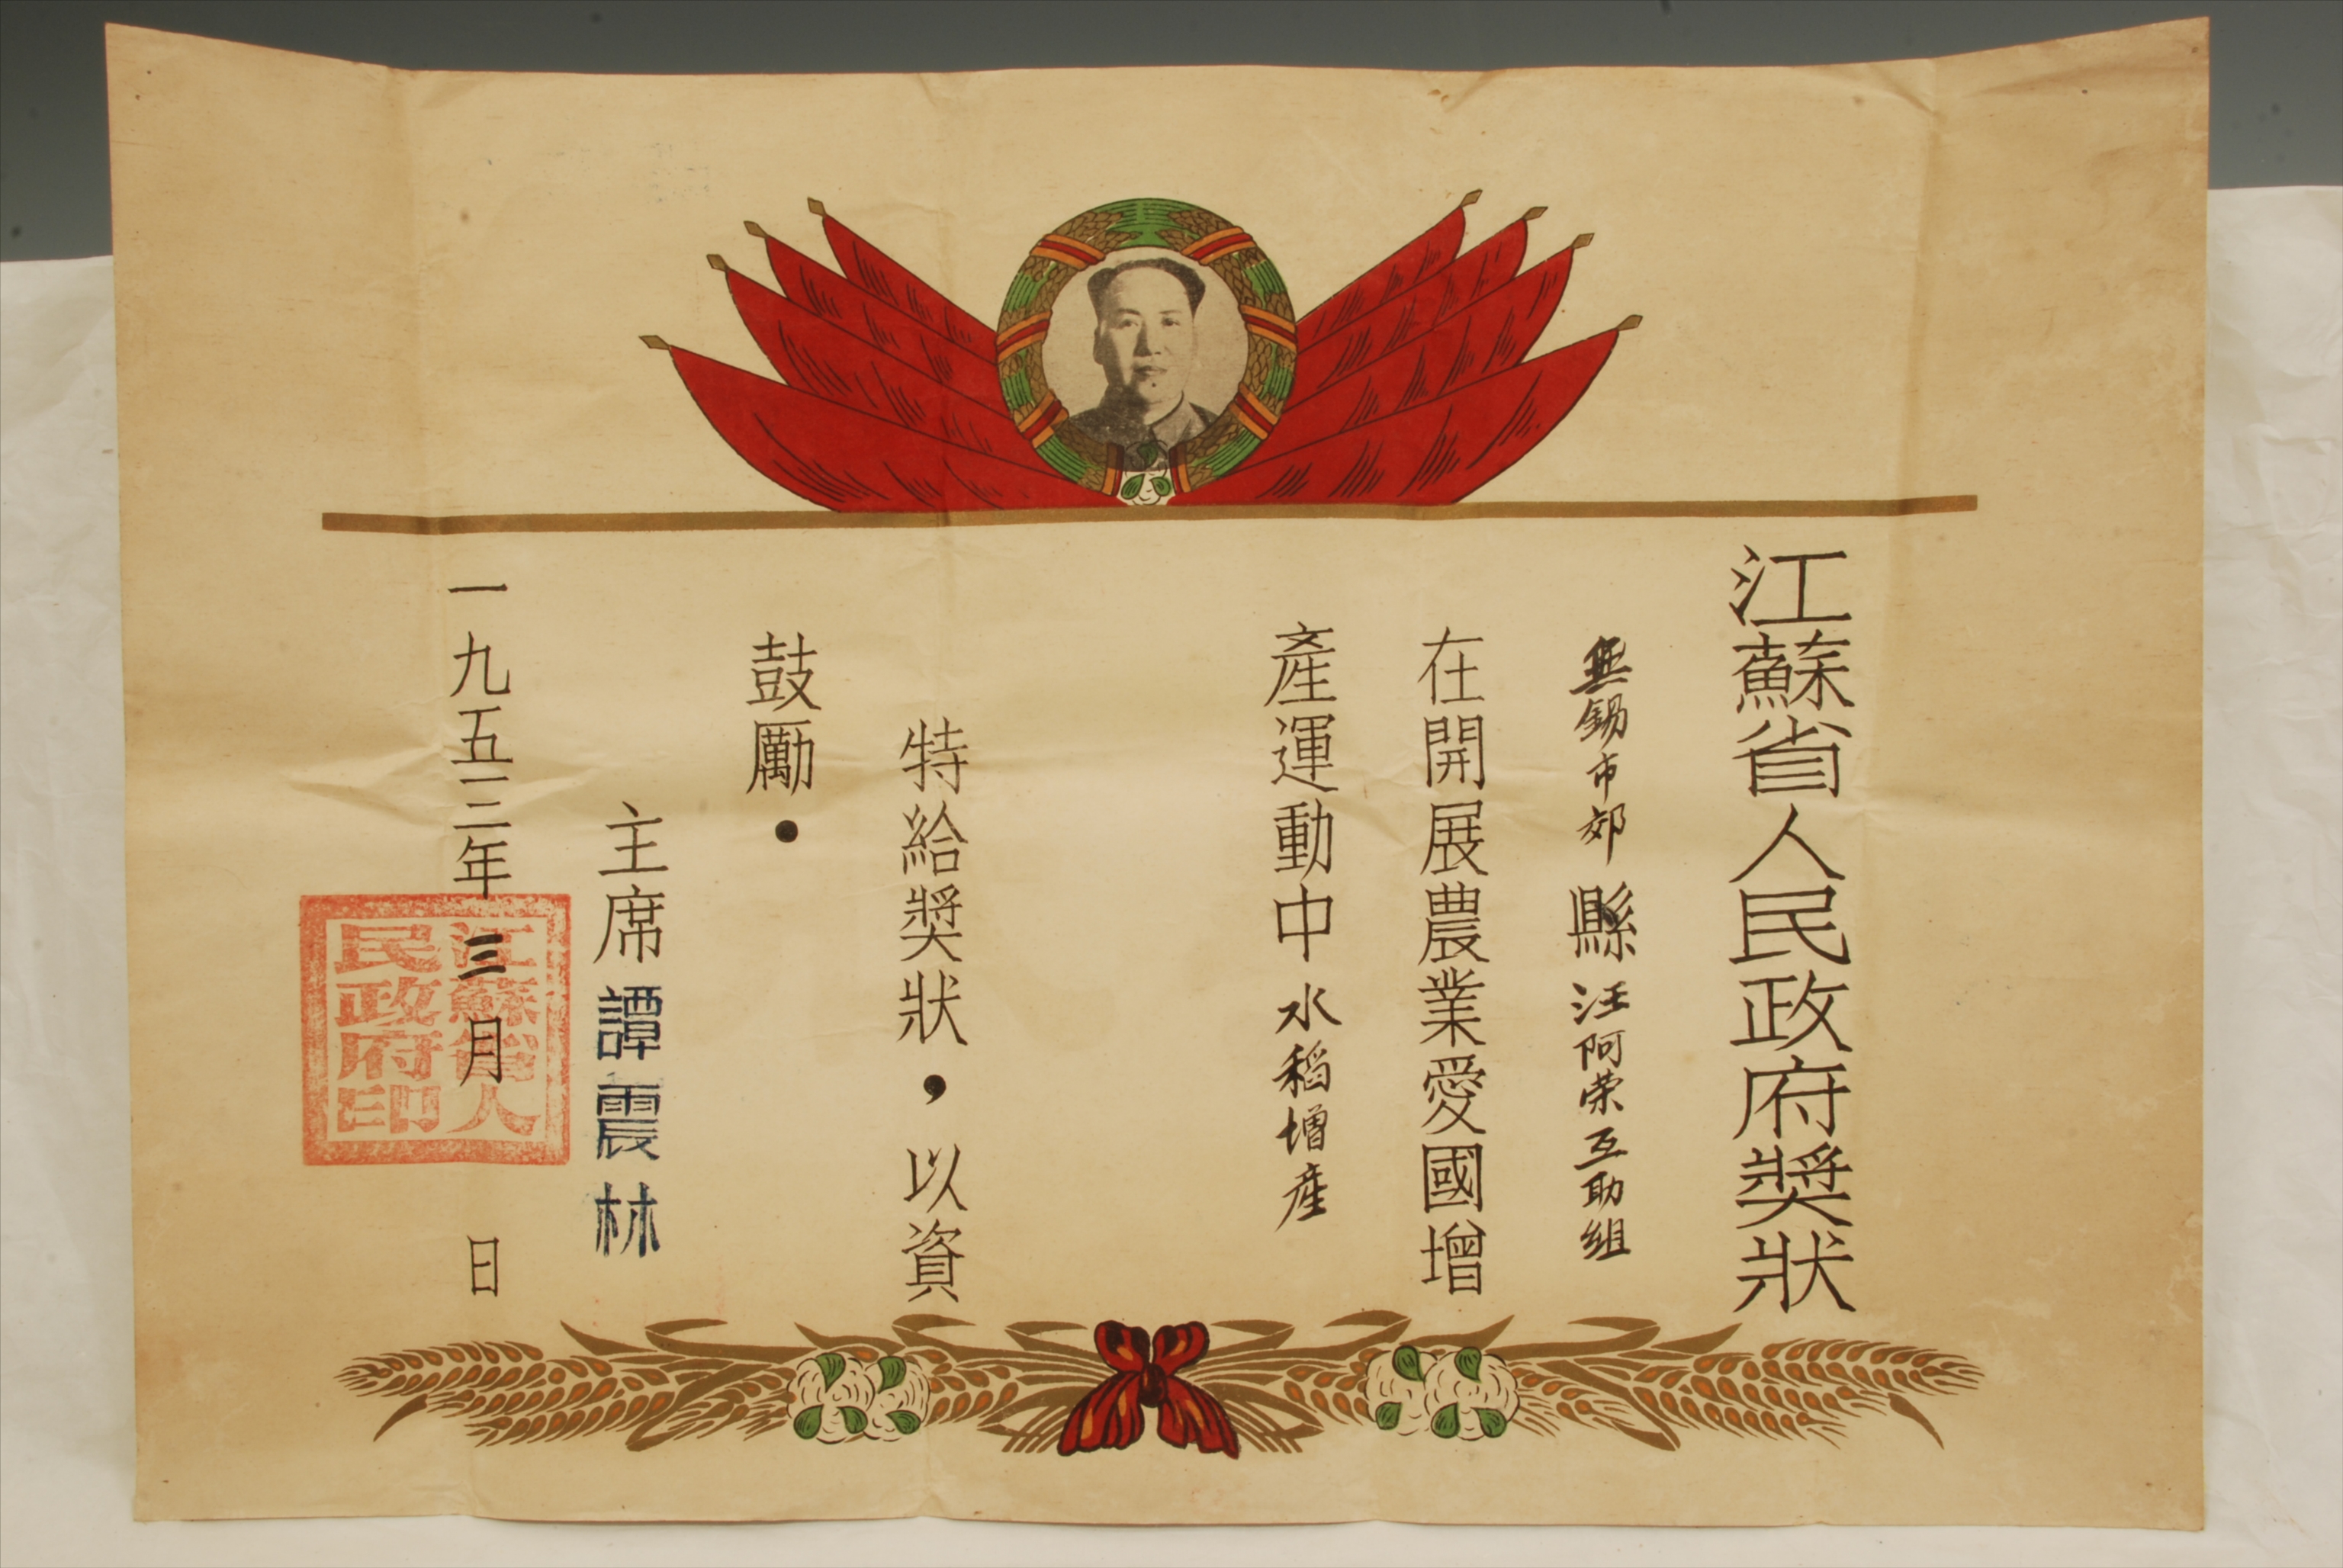 江蘇省人民政府奬狀
無錫市郊縣汪阿荣互助組
在開展農業愛國增
產運動中水稻增産
特給奬狀，以資
鼓勵．
主席譚震林
一九五三年三月　日
江蘇省人
民政府印